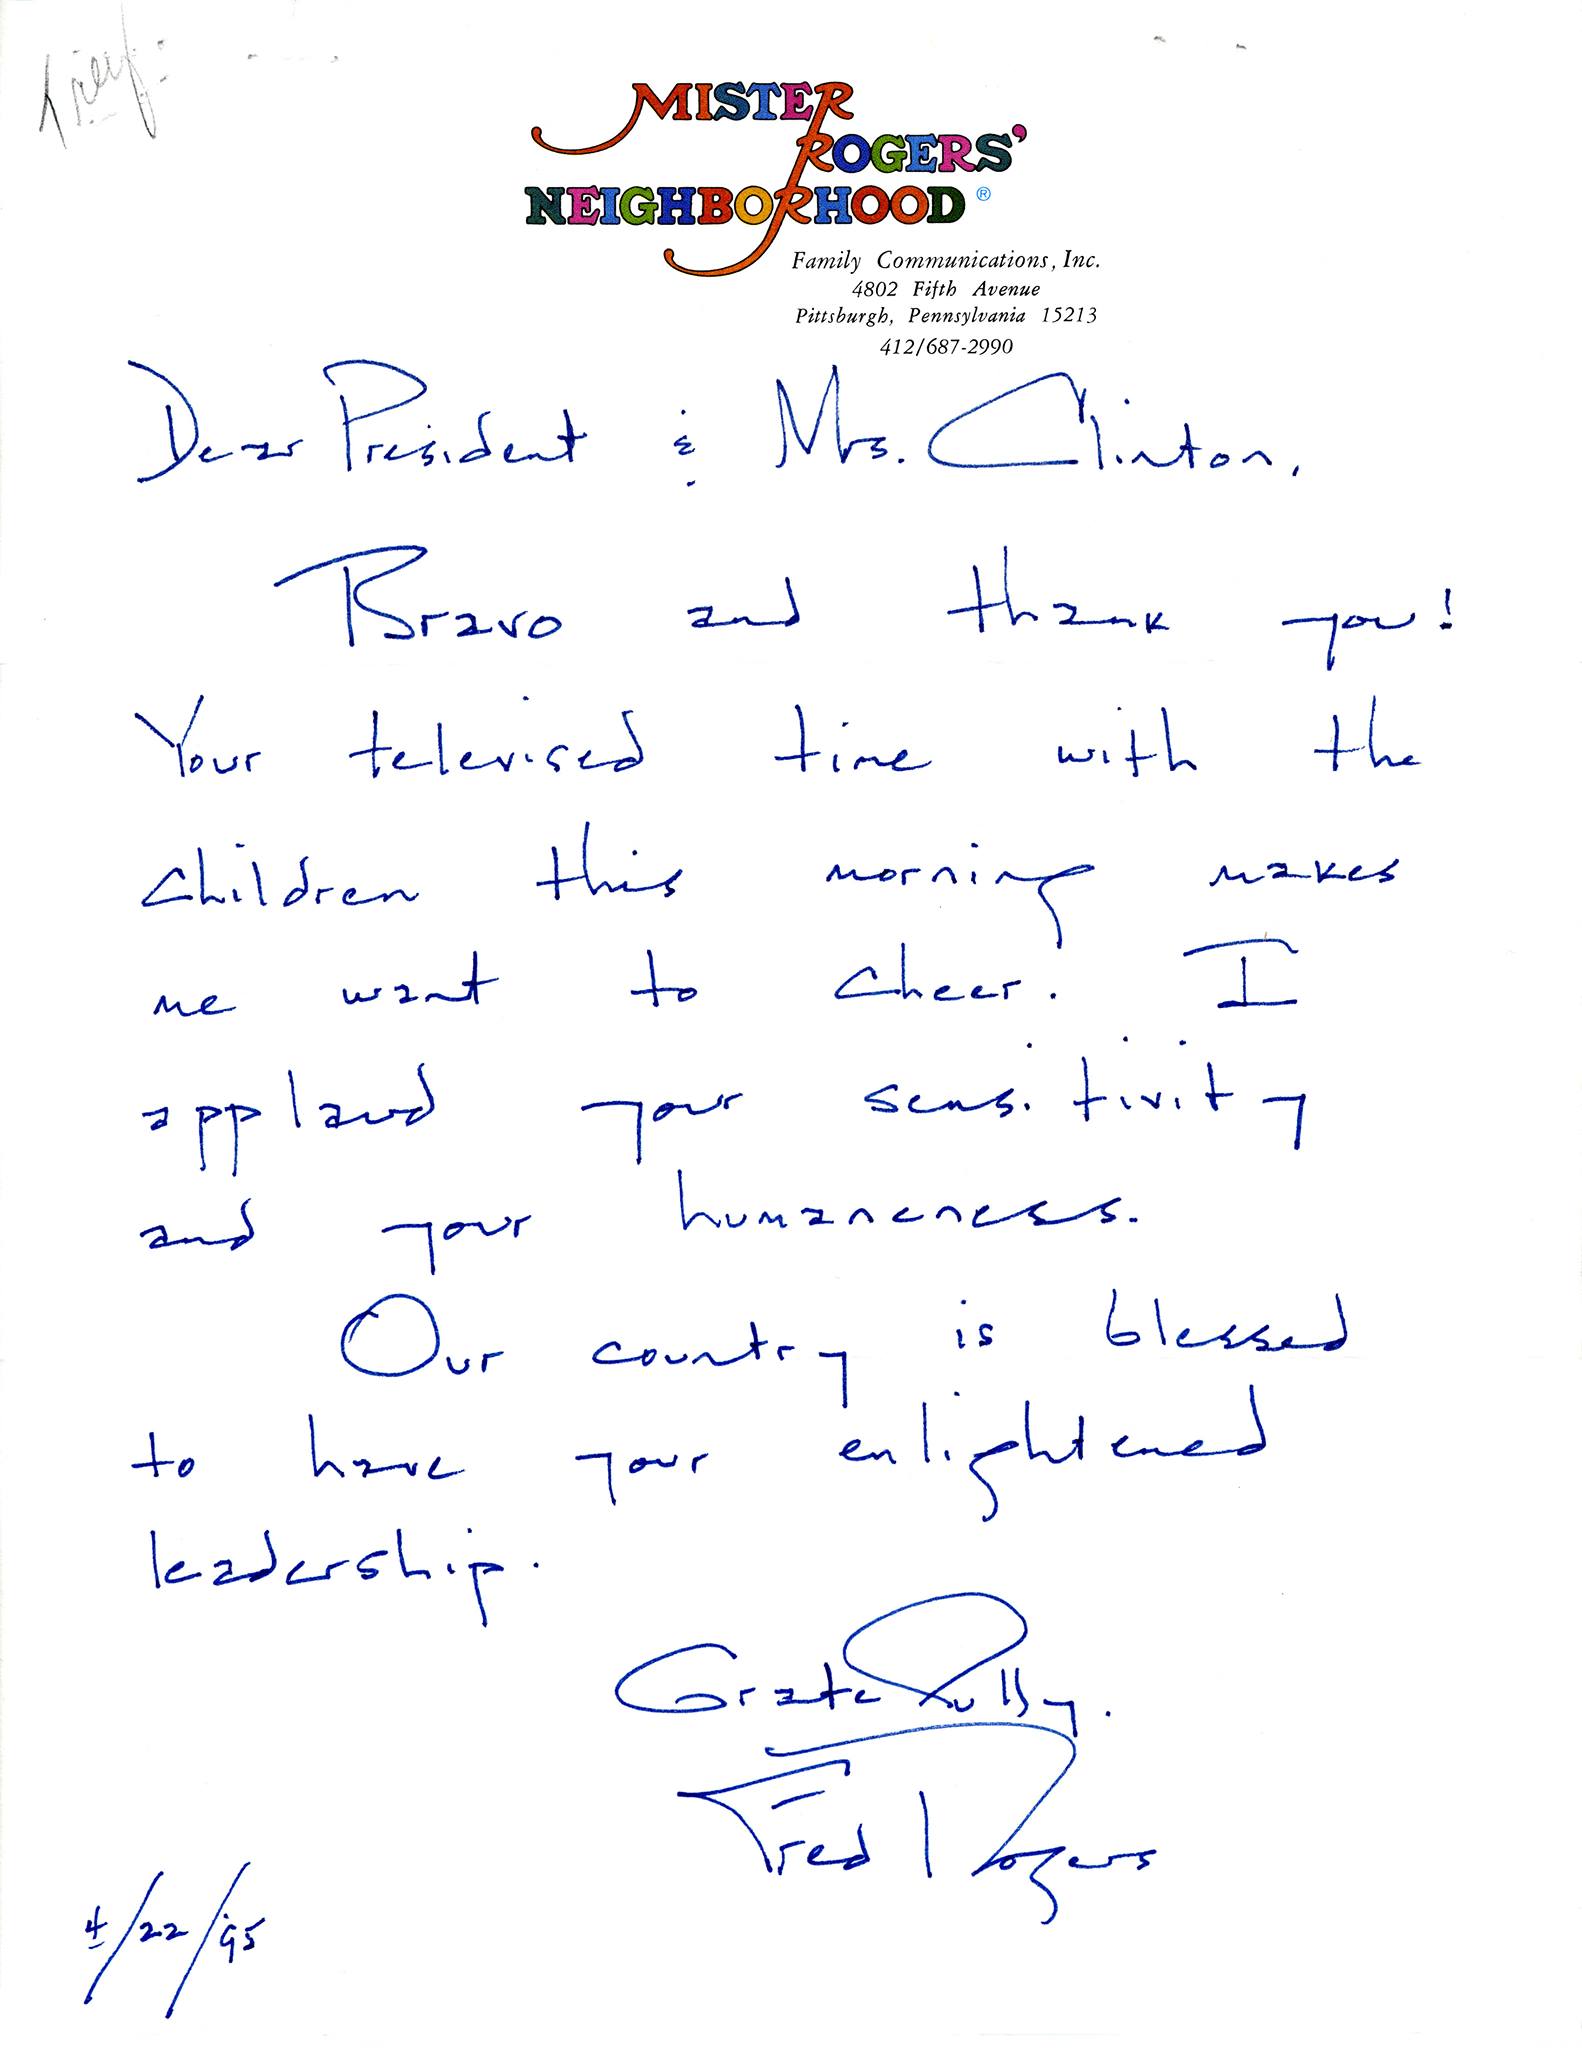 MISTER
ROGERS'
NEIGHBORHOOD ®
Family Communications, Inc.
4802 Fifth Avenue
Pittsburgh, Pennsylvania 15213
412/687-2990
Dear President & Mrs. Clinton,
Bravo and thank you!
Your televised time with the
children this morning makes
me want to cheer. I
applaud your sensitivity
and your humaneness.
Our country is blessed
to have your enlightened
leadership.
Gratefully.
Fred Rogers
4/22/95